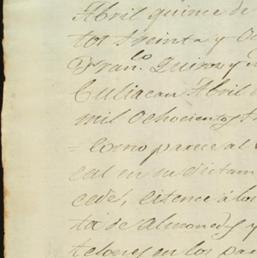 Abril quince de
tos treinta y oc
Franco Quiros y
Culiacan Abril
mil ochocientos t
= Como parece al
cal en su dictam
cedes, citence á los
ta de almoneda y
telones en los para